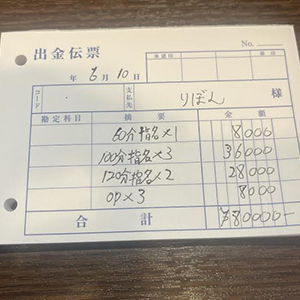 出金伝票 No.
承認印 係印
年 6月 10日
コード 支払先 りぼん 様
勘定科目 摘要 金額
60分指名×1 8000
100分指名×3 36000
120分指名×2 28000
op×3 8000
合計 ¥80000-